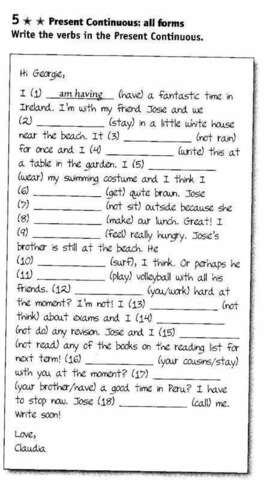 5 ★ ★ Present Continuous: all forms
Write the verbs in the Present Continuous.
Hi Georgie,
I (1) am having (have) a fantastic time in
Ireland. I'm with my friend Josie and we
(2) __________ (stay) in a little white house
near the beach. It (3) __________ (not rain)
for once and I (4) __________ (write) this at
a table in the garden. I (5) __________
(wear) my swimming costume and I think I
(6) __________ (get) quite brown. Josie
(7) __________ (not sit) outside because she
(8) __________ (make) our lunch. Great! I
(9) __________ (feel) really hungry. Josie's
brother is still at the beach. He
(10) __________ (surf), I think. Or perhaps he
(11) __________ (play) volleyball with all his
friends. (12) __________ (you/work) hard at
the moment? I'm not! I (13) __________ (not
think) about exams and I (14) __________
(not do) any revison. Josie and I (15) __________
(not read) any of the books on the reading list for
next term! (16) __________ (your cousins/stay)
with you at the moment? (17) __________
(your brother/have) a good time in Peru? I have
to stop now. Josie (18) __________ (call) me.
Write soon!
Love,
Claudia